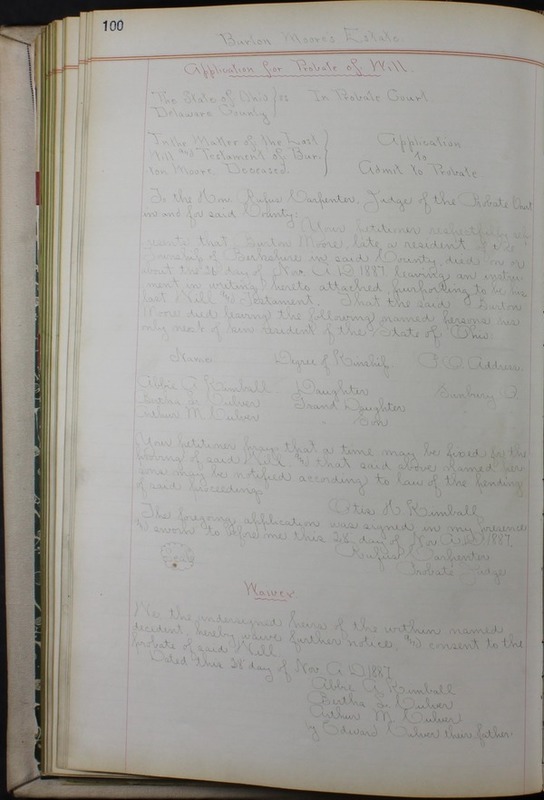 100
Burton Moore's Estate
Application for Probate of Will.
The State of Ohio / ss In Probate Court
Delaware County
In the Matter of the Last Application
Will and Testament of Bur- to
ton Moore Deceased. Admit to Probate
To the Hon. Rufus Carpenter, Judge of the Probate Court
in and for said County:
Your Petitioner respectfully rep-
resents that Burton Moore, late a resident of the
Township of Berkshire in said County, died on or
about the 26 day of Nov. A.D. 1887 leaving an instru
ment in writing hereto attached, purporting to be his
last Will and Testament. That the said Burton
Moore died leaving the following named persons his
only next of kin resident of the State of Ohio
Name Degree of Kinship. P.O. Address.
Abbie A Kimball Daughter Sunbury O
Culver Grand Daughter
Arthur M. Culver " Son
Your petitioner prays that a time may be fixed for the
proving of said Will and that said above named per
sons may be notified according to law of the pending
of said proceedings
Kimball
The foregoing application was signed in my presence
and sworn to before me this 28 day of Nov A.D. 1887.
Rufus Carpenter
Seal Probate Judge
Waiver
We the undersigned heirs of the within named
decedent hereby waive further notice, and consent to the
probate of said Will.
Dated this 28 day of Nov. A.D 1887
Abbie A Kimball
Bertha Culver
Arthur M. Culver
by Edward Culver their father.